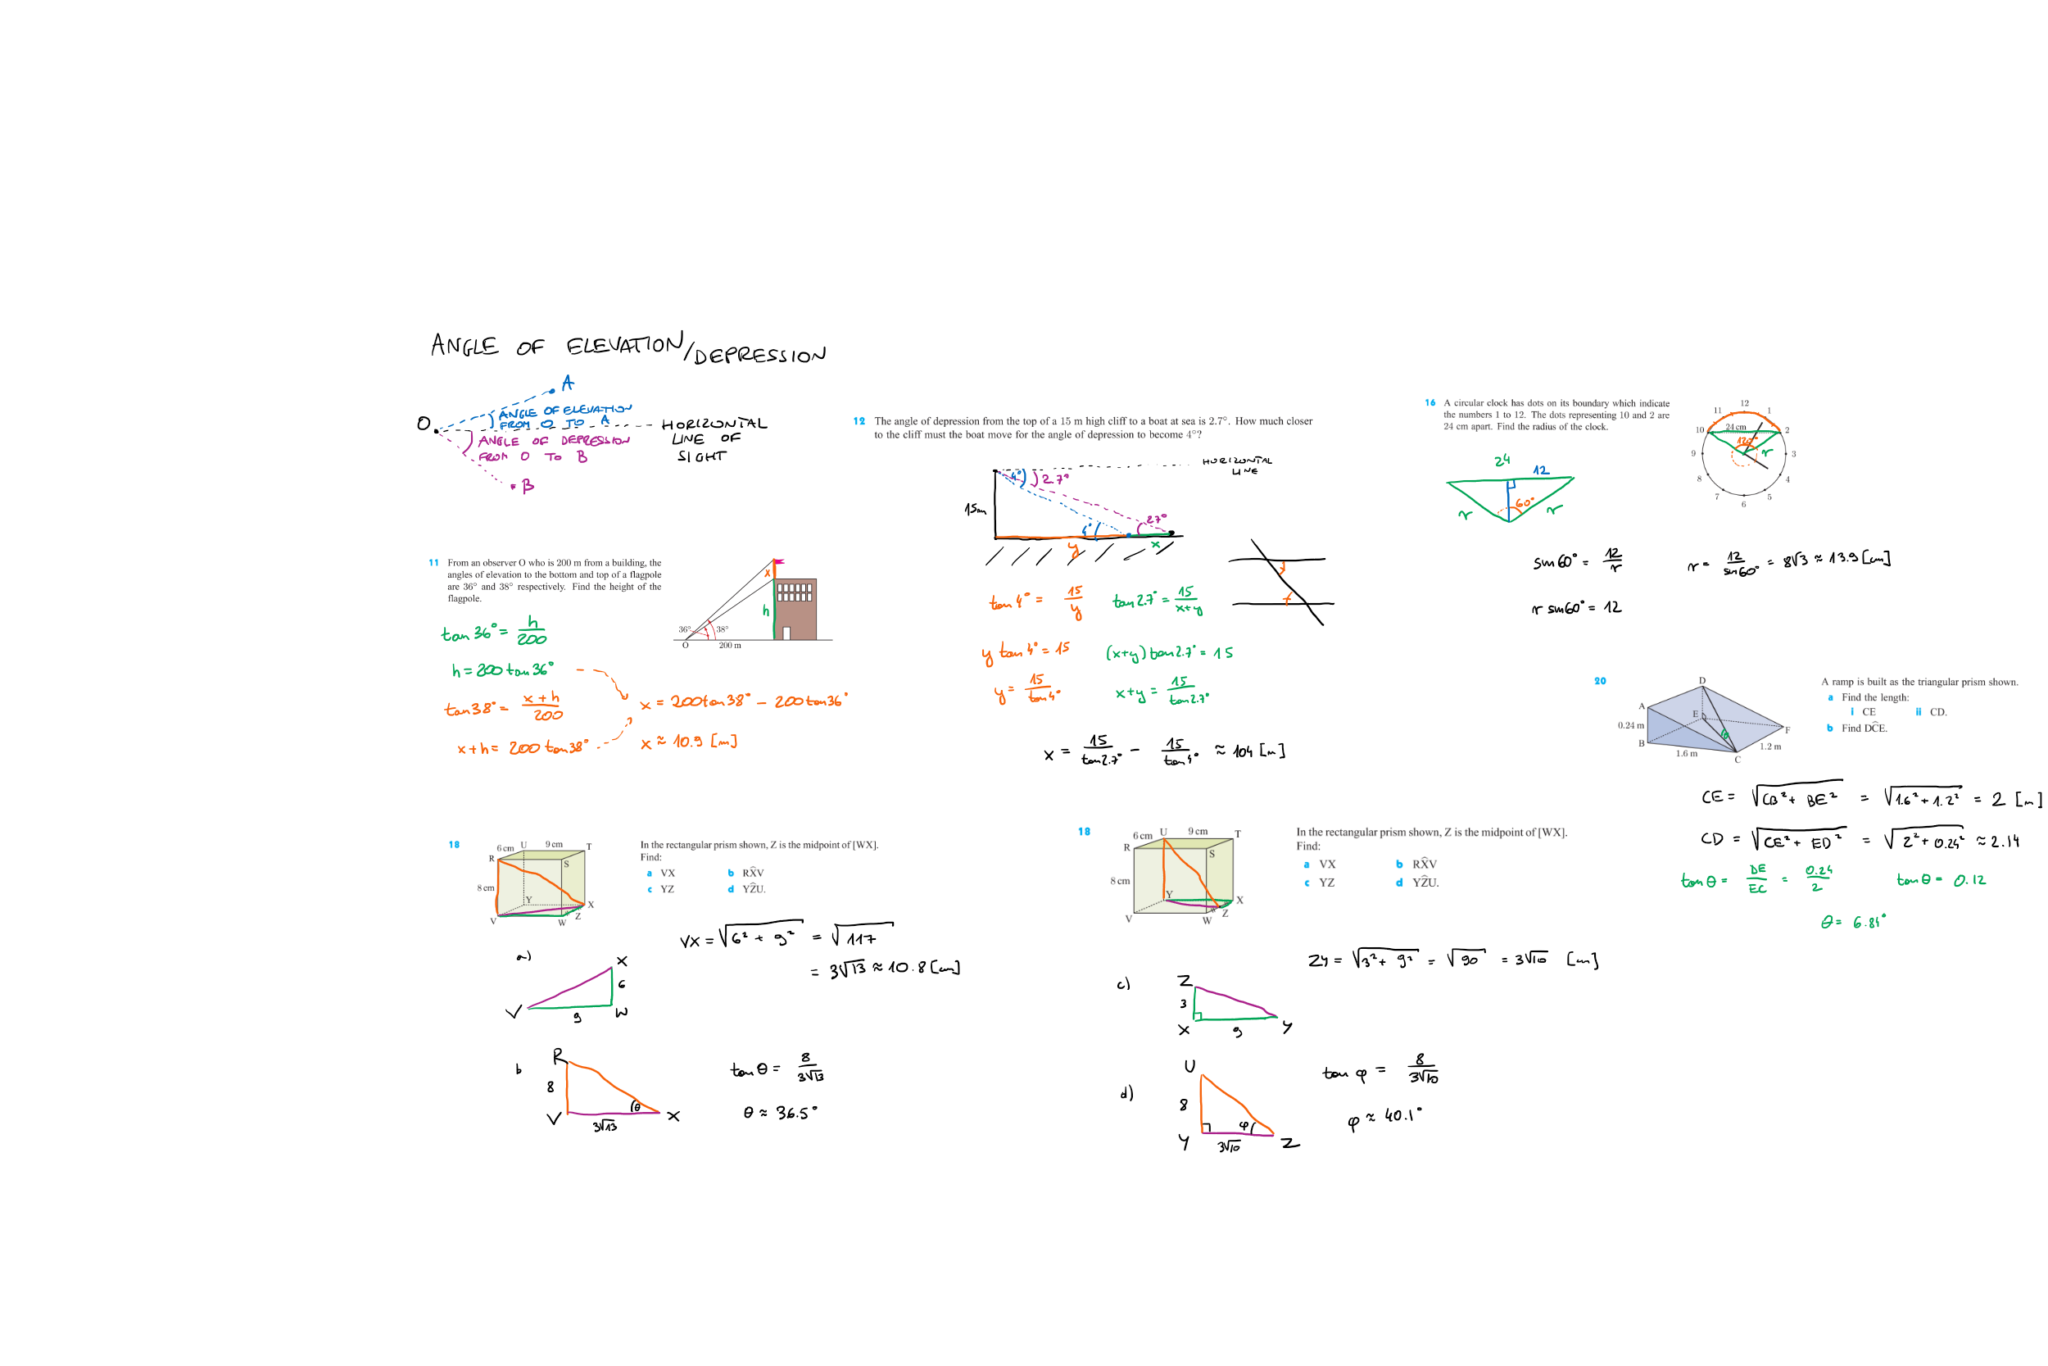 ANGLE OF ELEVATION/DEPRESSION
A
O
ANGLE OF ELEVATION
FROM O TO A
HORIZONTAL
LINE OF
SIGHT
ANGLE OF DEPRESSION
FROM O TO B
B
11 From an observer O who is 200 m from a building, the
angles of elevation to the bottom and top of a flagpole
are 36° and 38° respectively. Find the height of the
flagpole.
x
h
36°
38°
O
200 m
tan 36° = h/200
h = 200 tan 36°
tan 38° = (x+h)/200
x+h = 200 tan 38°
x = 200 tan 38° - 200 tan 36°
x ≈ 10.9 [m]
12 The angle of depression from the top of a 15 m high cliff to a boat at sea is 2.7°. How much closer
to the cliff must the boat move for the angle of depression to become 4°?
HORIZONTAL
LINE
4°
2.7°
15m
4°
2.7°
y
x
tan 4° = 15/y
tan 2.7° = 15/(x+y)
y tan 4° = 15
(x+y) tan 2.7° = 15
y = 15/tan 4°
x+y = 15/tan 2.7°
x = 15/tan 2.7° - 15/tan 4° ≈ 104 [m]
16 A circular clock has dots on its boundary which indicate
the numbers 1 to 12. The dots representing 10 and 2 are
24 cm apart. Find the radius of the clock.
12
11
1
10
24 cm
2
120°
r
9
3
8
4
7
5
6
24
12
60°
r
r
sin 60° = 12/r
r = 12/sin 60° = 8√3 ≈ 13.9 [cm]
r sin 60° = 12
20
D
A
E
F
0.24 m
B
θ
1.6 m
C
1.2 m
A ramp is built as the triangular prism shown.
a Find the length:
i CE
ii CD.
b Find DĈE.
CE = √(CB² + BE²) = √(1.6² + 1.2²) = 2 [m]
CD = √(CE² + ED²) = √(2² + 0.24²) ≈ 2.14
tan θ = DE/EC = 0.24/2
tan θ = 0.12
θ = 6.84°
18
6 cm
U
9 cm
T
R
S
8 cm
Y
X
V
W
Z
In the rectangular prism shown, Z is the midpoint of [WX].
Find:
a VX
b RX̂V
c YZ
d YẐU.
a)
X
6
V
9
W
VX = √(6² + 9²) = √117
= 3√13 ≈ 10.8 [cm]
b
R
8
V
θ
X
3√13
tan θ = 8/(3√13)
θ ≈ 36.5°
18
6 cm
U
9 cm
T
R
S
8 cm
Y
X
V
W
Z
In the rectangular prism shown, Z is the midpoint of [WX].
Find:
a VX
b RX̂V
c YZ
d YẐU.
c)
Z
3
X
9
Y
ZY = √(3² + 9²) = √90 = 3√10 [cm]
d)
U
8
Y
φ
Z
3√10
tan φ = 8/(3√10)
φ ≈ 40.1°